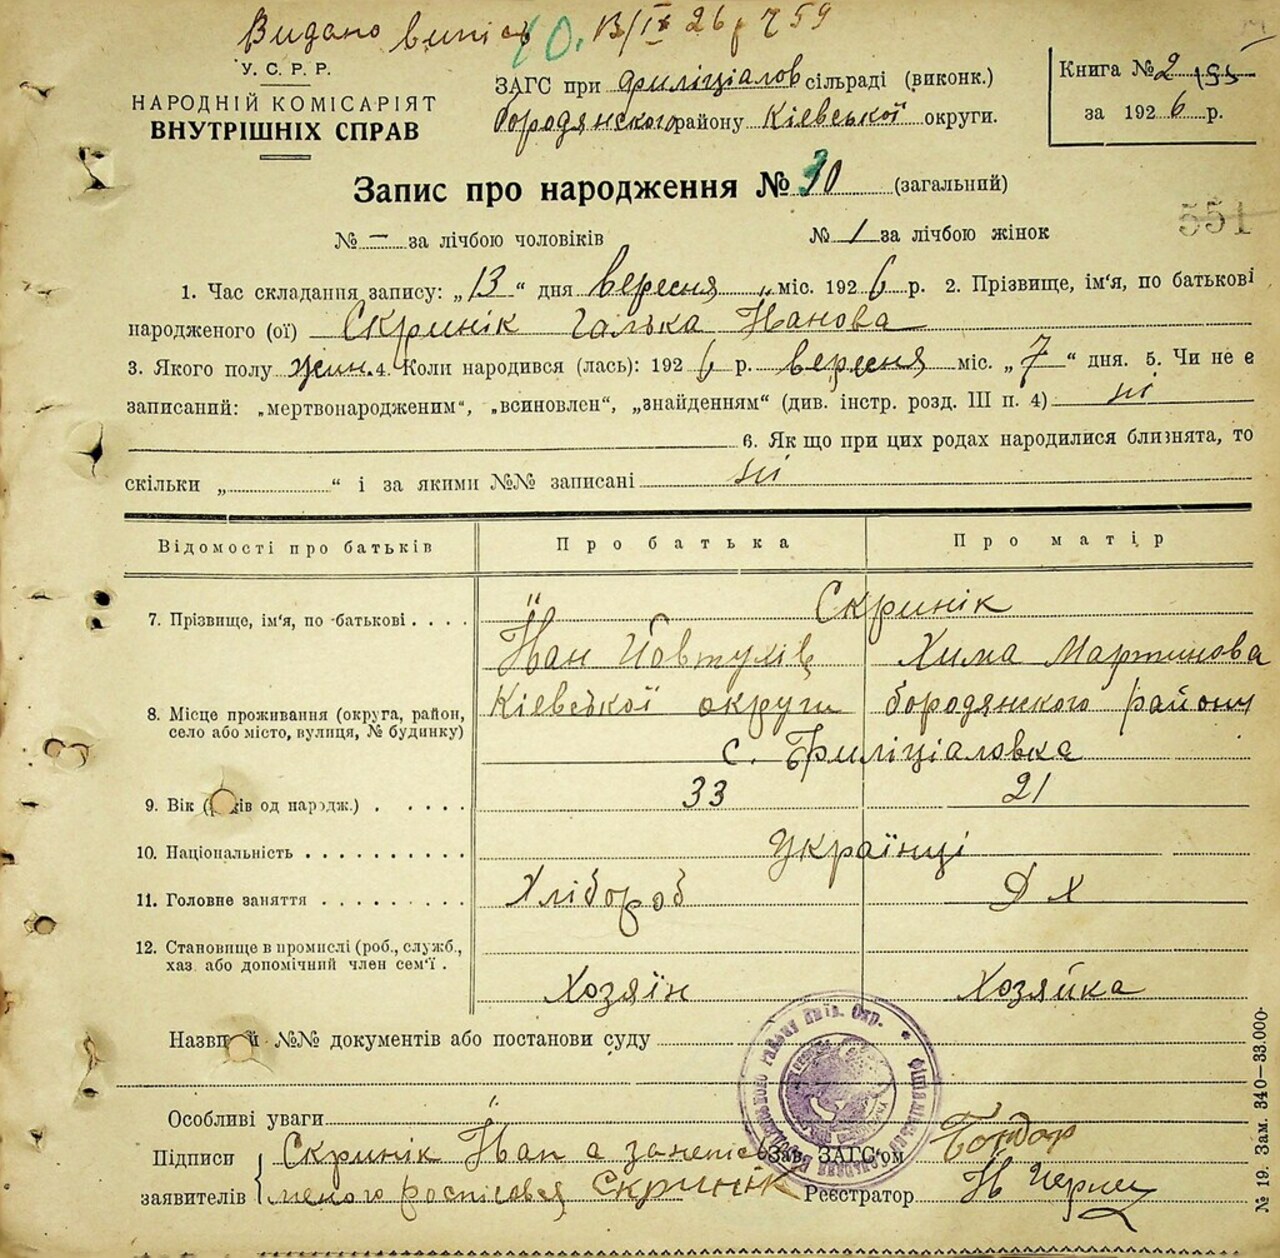 Видано випись 13/IX 26 р 759
У. С. Р. Р.
НАРОДНІЙ КОМІСАРІЯТ
ВНУТРІШНІХ СПРАВ
ЗАГС при Филіціалов сільраді (виконк.)
бородянского району Кіевської округи.
Книга № 2
за 1926 р.
Запис про народження № 30 (загальний)
551
№ – за лічбою чоловіків № 1 за лічбою жінок
1. Час складання запису: „13“ дня вересня міс. 1926 р. 2. Прізвище, ім'я, по батькові
народженого (ої) Скринік Галька Иванова
3. Якого полу жин. 4. Коли народився (лась): 1926 р. вересня міс. „7“ дня. 5. Чи не є
записаний: „мертвонародженим“, „всиновлен“, „знайденням“ (див. інстр. розд. III п. 4) ні
6. Як що при цих родах народилися близнята, то
скільки „ “ і за якими №№ записані ні
Відомості про батьків Про батька Про матір
Скринік
7. Прізвище, ім'я, по батькові . . . .
Иван Йовтухів Хима Мартинова
Кіевської округи бородянского району
8. Місце проживання (округа, район,
село або місто, вулиця, № будинку)
с. Филіціаловка
9. Вік (років од народж.) . . . . . 33 21
10. Національність . . . . . . . . . . Українці
11. Головне заняття . . . . . . . . . Хлібороб Д Х
12. Становище в промислі (роб., служб.,
хаз. або допомічний член сем'ї .
Хозяїн Хозяйка
Назви й №№ документів або постанови суду
Особливі уваги
Підписи Скринік Иван а за неписьменого росписовся Скринік
заявителів
Зав. ЗАГС'ом Бондар
Реєстратор
№ 19. Зам. 340—33.000.